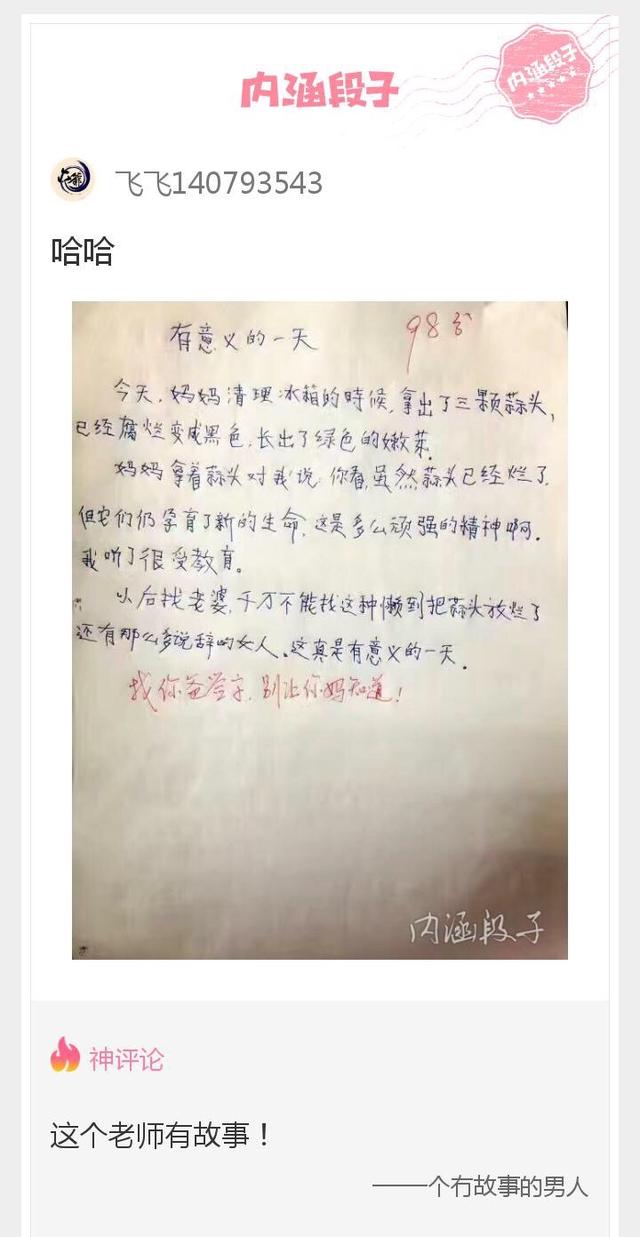 内涵段子
内涵段子
飞飞140793543
哈哈
有意义的一天
98分
今天,妈妈清理冰箱的時候,拿出了三颗蒜头,
已经腐烂变成黑色,长出了绿色的嫩芽.
妈妈拿着蒜头对我说:你看,虽然蒜头已经烂了.
但它们仍孕育了新的生命,这是多么顽强的精神啊.
我听了很受教育。
以后找老婆,千万不能找这种懒到把蒜头放烂了
还有那么多说辞的女人.这真是有意义的一天.
找你爸签字,别让你妈知道!
内涵段子
神评论
这个老师有故事！
——一个冇故事的男人